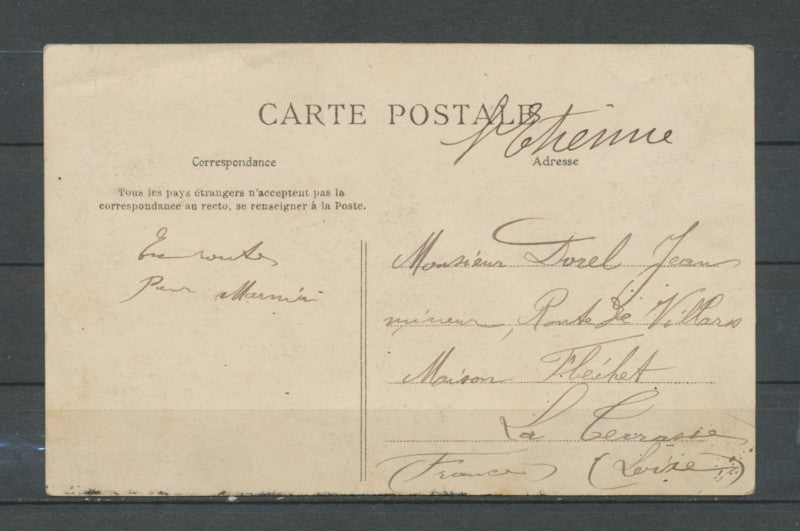 CARTE POSTALE
St Etienne
Correspondance
Adresse
Tous les pays étrangers n'acceptent pas la
correspondance au recto, se renseigner à la Poste.
En route
Pour
Monsieur Dorel Jean
mineur, Route de Villars
Maison Fléchet
La Terrasse
(France) (Loire)